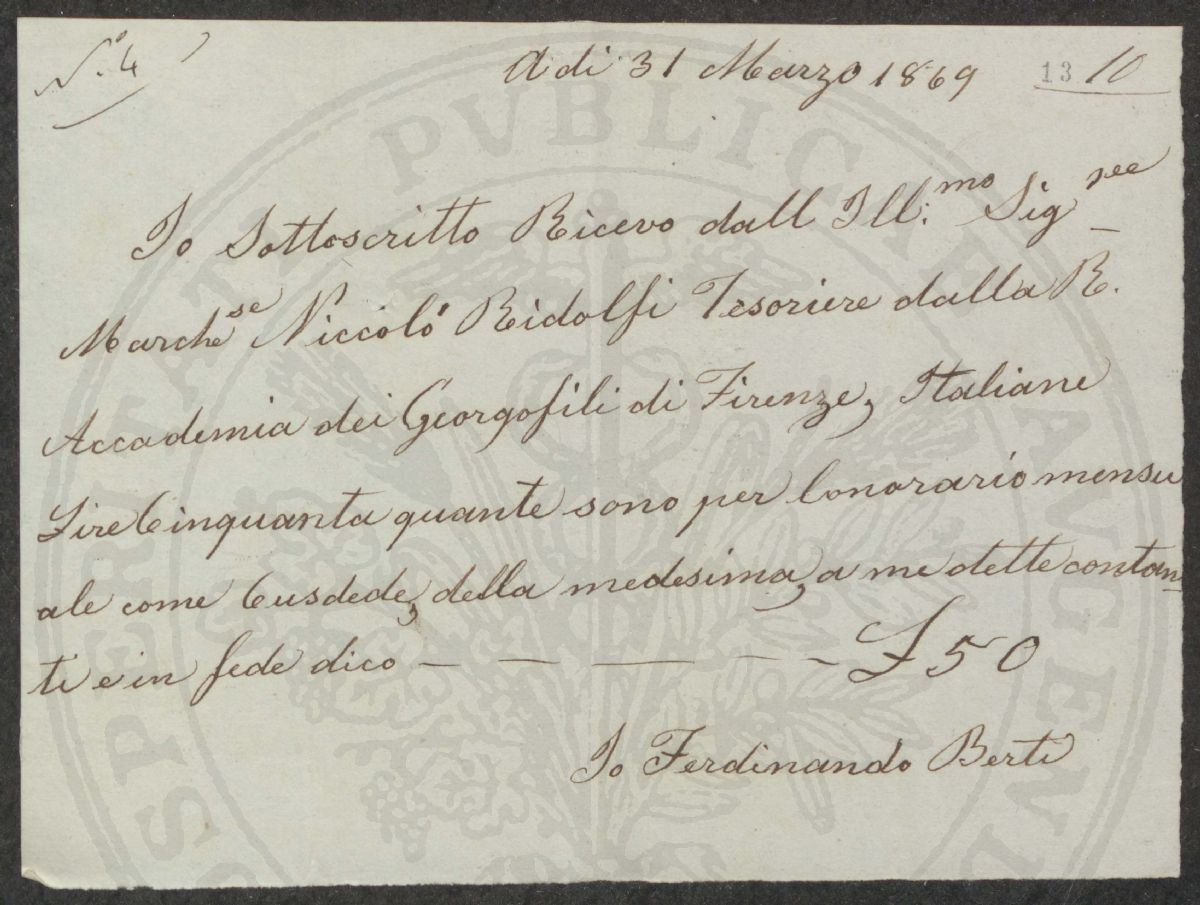 N.o 4
Adi 31 Marzo 1869
13 10
Io Sottoscritto Ricevo dall Ill:mo Sigree
Marchese Niccoló Ridolfi Tesoriere dalla R.
Accademia dei Georgofili di Firenze, Italiane
Lire Cinquanta quante sono per lonorario mensu
ale come Cusdede, della medesima, a me dette contan_
ti e in fede dico — — — — £ 50
Io Ferdinando Berti
PROSPERITATI PVBLICAE AVGENDAE